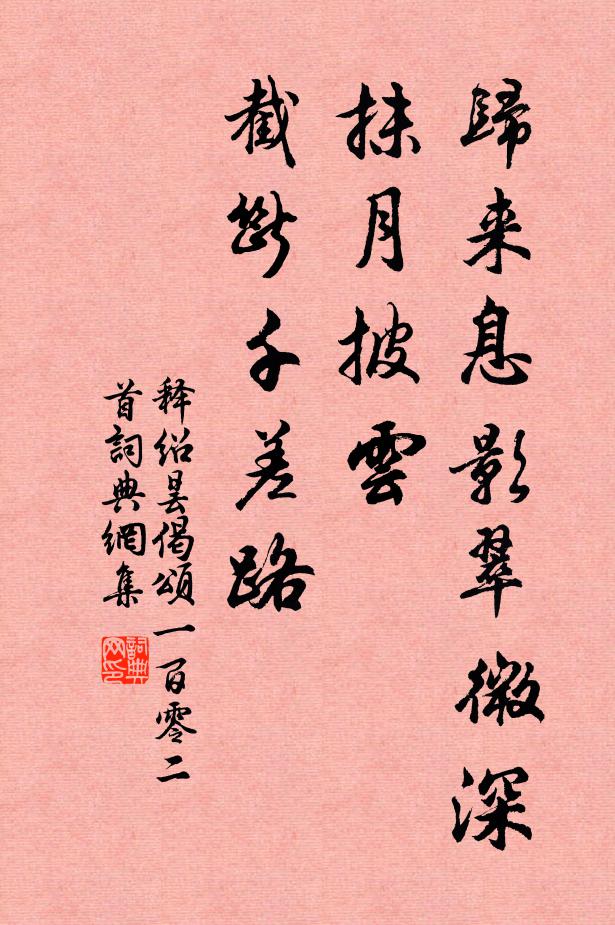 歸来息影翠微深
抹月披雲
截斷千差路
釋紹曇偈頌一百零二
首詞典網集
詞典
网印